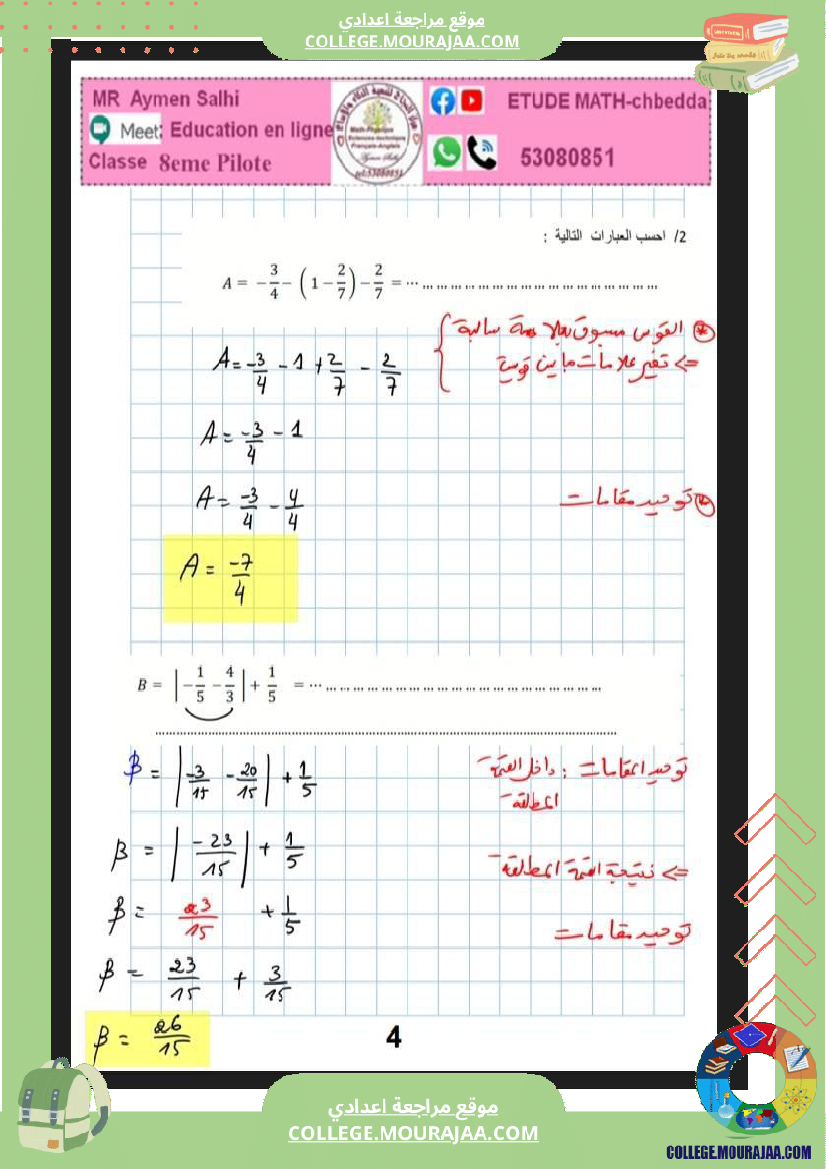 موقع مراجعة اعدادي
COLLEGE.MOURAJAA.COM
MR Aymen Salhi
Meet: Education en ligne
Classe 8eme Pilote
ETUDE MATH-chbedda
53080851
2/ احسب العبارات التالية :
A = -3/4 - (1 - 2/7) - 2/7 = ... ... ... ... ... ... ... ... ... ... ... ... ... ... ... ... ... ...
القوس مسبوق بعلامة سالبة
A = -3/4 - 1 + 2/7 - 2/7
=> تغير علامات ما بين قوسين
A = -3/4 - 1
A = -3/4 - 4/4
توحيد مقامات
A = -7/4
B = |-1/5 - 4/3| + 1/5 = ... ... ... ... ... ... ... ... ... ... ... ... ... ... ... ... ... ... ... ... ...
B = |-3/15 - 20/15| + 1/5
توحيد المقامات : داخل القيمة
المطلقة
B = |-23/15| + 1/5
=> نتيجة القيمة المطلقة
B = 23/15 + 1/5
توحيد مقامات
B = 23/15 + 3/15
B = 26/15
4
موقع مراجعة اعدادي
COLLEGE.MOURAJAA.COM
COLLEGE.MOURAJAA.COM